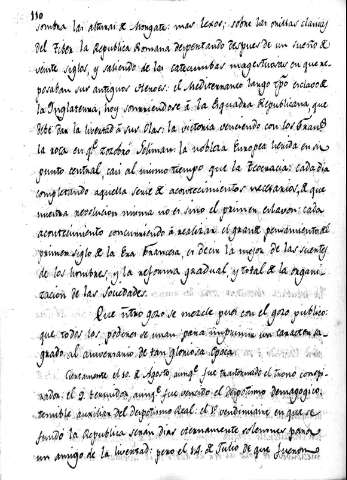 110
sombra las altenas & Mongate: mas lexos; sobre las orillas clasicas
del Tiber la Republica Romana despertando despues de un sueño &
veinte siglos, y saliendo de las catecumbas magestuosas en que re-
posaban sus antiguos heroes: el Mediterraneo largo tpo esclavo &
la Inglaterra, hoy sonrriendose à la Esquadra Republicana, que
debe dar la livertad à sus Olas: la victoria venciendo con los Franc.s
la roca en q.e zozobró Soliman: la nobleza Europea herida en su
punto central, casi al mismo tiempo que la Teocracia: cada dia
completando aquella serie & acontecimientos necesarios, & que
nuestra revolucion misma no es sino el primer eslavon: cada
acontecimiento concurriendo à realizar el grande pensamiento del
primer siglo & la Era Francesa, es decir la mejora de las suertes
de los hombres, y la reforma gradual, y total & la organi-
zacion de las Sociedades.
Que ntro gozo se mezcle pues con el gozo publico:
que todos los poderes se unan para imprimir un caracter sa-
grado al aniversario de tan gloriosa epoca.
Ciertamente el 10. & Agosto, aunq.e fue trastornado el trono conspi-
rador: el 9. termidor, aunq.e fue vencido el despotismo demagogico:
temible auxiliar del despotismo Real: el 1.º vendimiario, en que se
fundó la Republica serán dias eternamente solemnes para
un amigo de la livertad: pero el 14. & Julio de que fueron